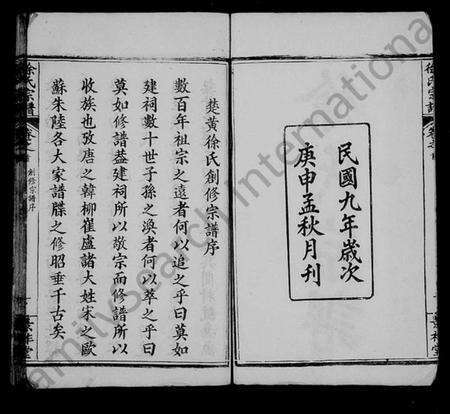 徐氏宗譜
民國九年歲次
庚申孟秋月刊
楚黃徐氏創修宗譜序
數百年祖宗之遠者何以追之乎曰莫如
建祠數十世子孫之渙者何以萃之乎曰
莫如修譜葢建祠所以敬宗而修譜所以
收族也攷唐之韓柳崔盧諸大姓宋之歐
蘇朱陸各大家譜牒之修昭垂千古矣
徐氏宗譜
創修宗譜序
FamilySearch International